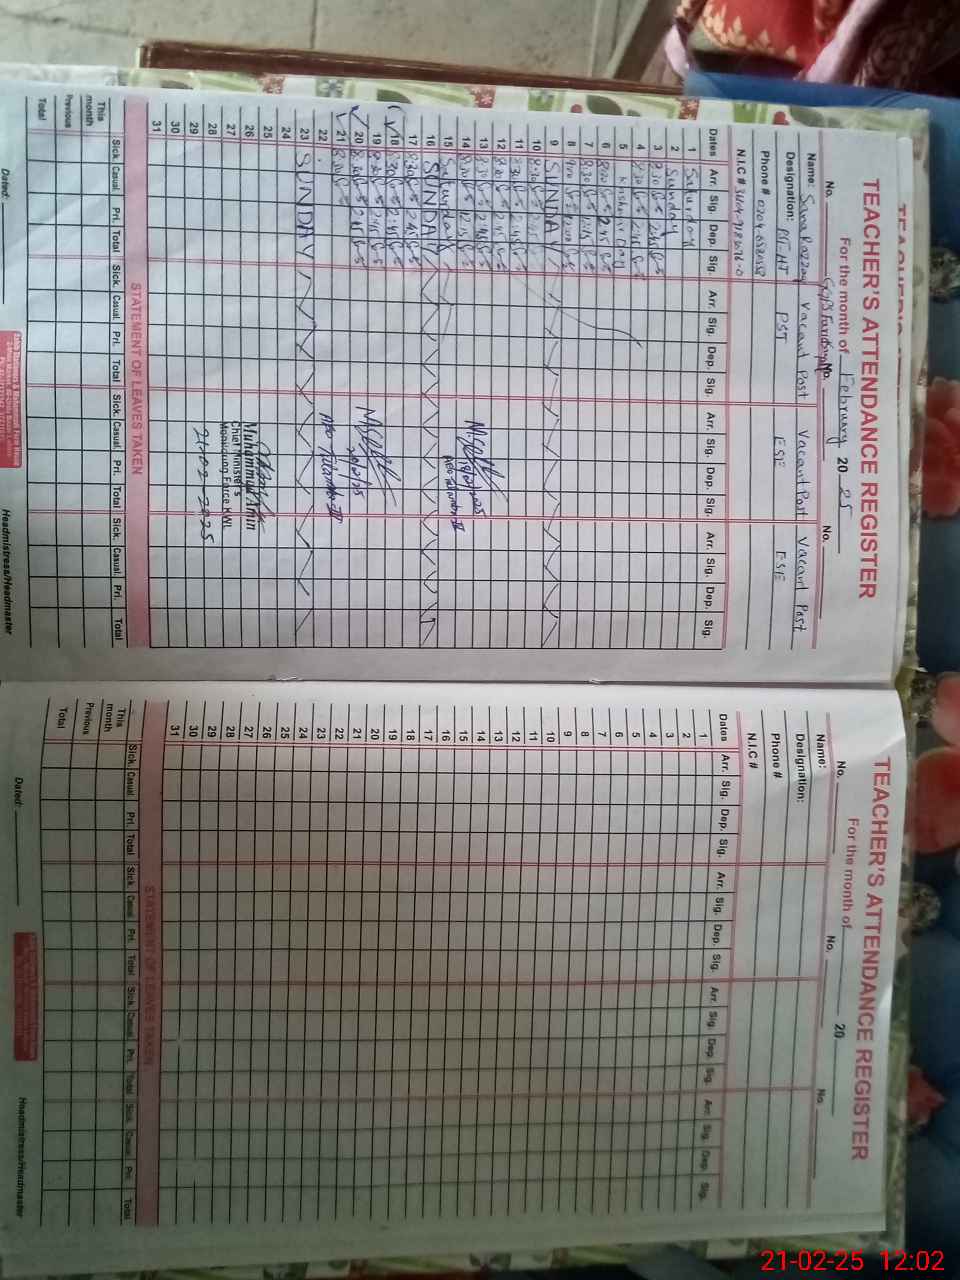 TEACHER'S ATTENDANCE REGISTER
For the month of February 20 25
No. No. No.
Name: Sana Razzaq Vacant Post Vacant Post Vacant Post
Designation: PST-HT PST ESE ESE
Phone #
N.I.C #
Dates Arr. Sig. Dep. Sig. Arr. Sig. Dep. Sig. Arr. Sig. Dep. Sig. Arr. Sig. Dep. Sig.
1 Saturday
2 Sunday
3 8:30 2:45
4 8:30 2:45
5 Kashmir Day
6 8:30 2:45
7 8:30
8
9 SUNDAY
10 8:30 2:45
11 8:30 2:45
12 8:30 2:45
13 8:30 2:45
14 8:30 12:15
15 Saturday
16 SUNDAY
17 8:30 2:45
18 8:30 2:45
19 8:30 2:45
20 8:30 2:45
21 8:30
22
23 SUNDAY
24
25
26
27
28
29
30
31
20/2/25
Muhammad Amin
Chief Minister's
Monitoring Force KWL
21-02-2025
STATEMENT OF LEAVES TAKEN
Sick. Casual. Pri. Total Sick. Casual. Pri. Total Sick. Casual. Pri. Total Sick. Casual. Pri. Total
This month
Previous
Total
Dated: Headmistress/Headmaster
TEACHER'S ATTENDANCE REGISTER
For the month of 20
No. No. No.
Name:
Designation:
Phone #
N.I.C #
Dates Arr. Sig. Dep. Sig. Arr. Sig. Dep. Sig. Arr. Sig. Dep. Sig. Arr. Sig. Dep. Sig.
1
2
3
4
5
6
7
8
9
10
11
12
13
14
15
16
17
18
19
20
21
22
23
24
25
26
27
28
29
30
31
STATEMENT OF LEAVES TAKEN
Sick. Casual. Pri. Total Sick. Casual. Pri. Total Sick. Casual. Pri. Total Sick. Casual. Pri. Total
This month
Previous
Total
Dated: Headmistress/Headmaster
21-02-25 12:02